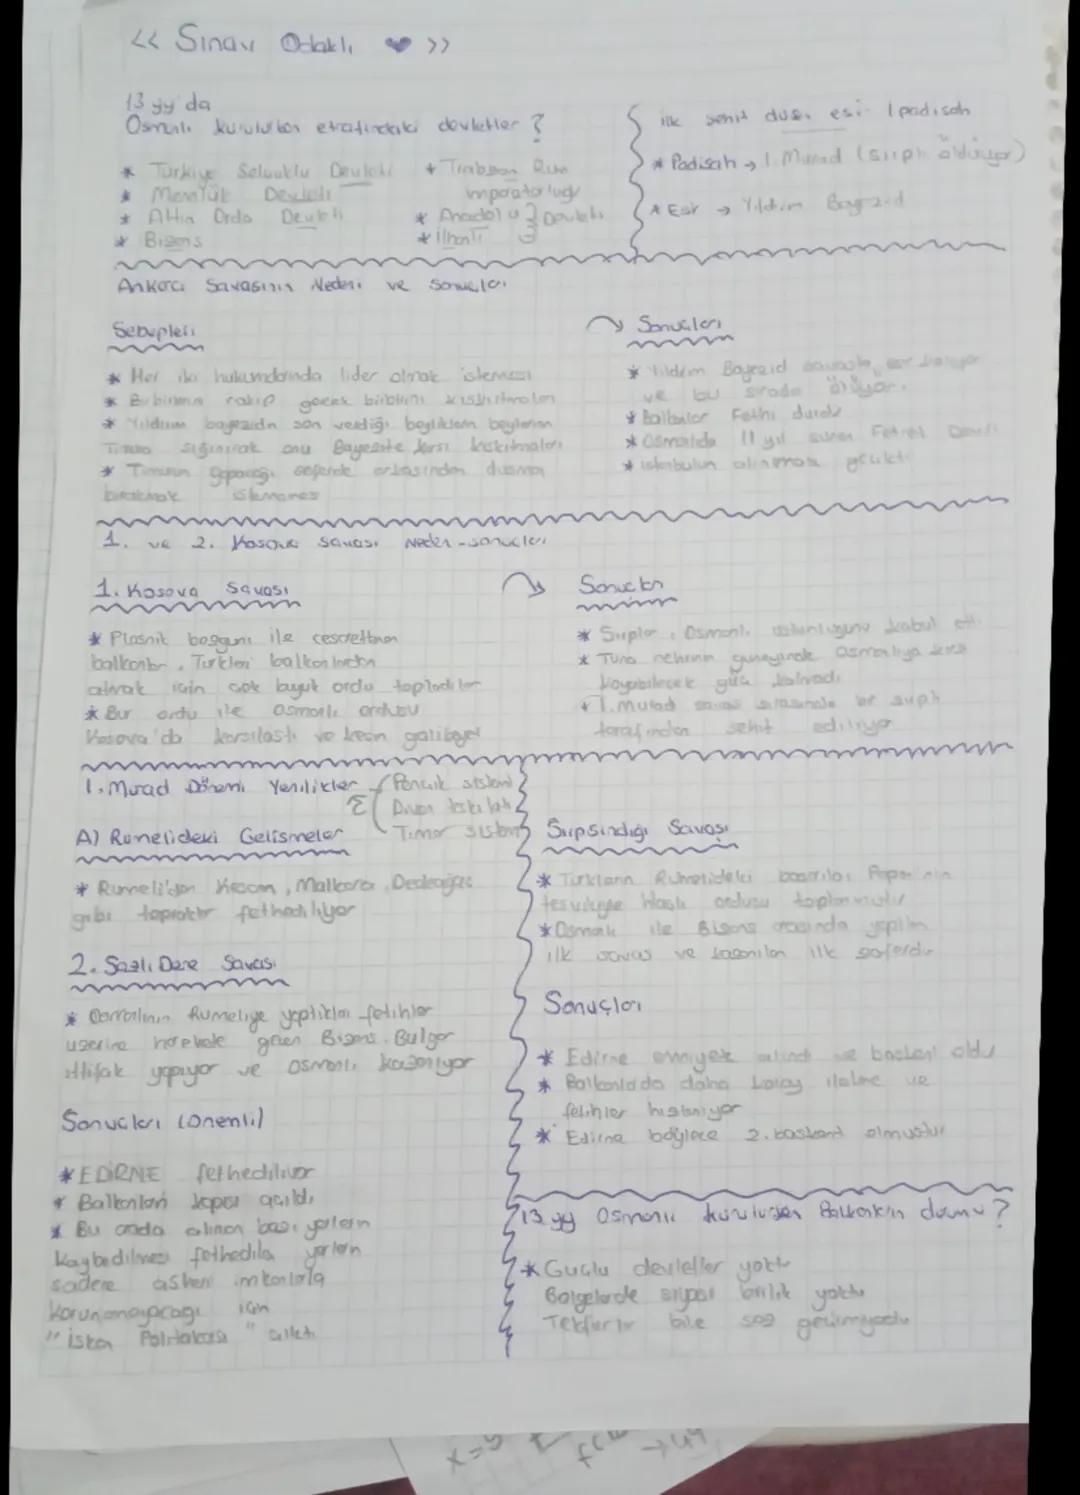 << Sınav Odaklı ❤ >>
13 yy'da
Osmanlı kurulurken etrafındaki devletler ?
* Türkiye Selçuklu Devleti
* Memlük Devleti
* Altın Orda Devleti
* Bizans
* Trabzon Rum
imparatorluğu
* Anadolu Devleti
* İlhanlı
ilk şehit düşen, esir padişah
* Padişah → 1. Murad (sırplı öldürüyor)
* Esir → Yıldırım Bayezid
Ankara Savaşının Nedeni ve Sonuçları
Sebepleri
* Her iki hükümdarında lider olmak istemesi
* Birbirinin rakip gerek birbirini kışkırtmaları
* Yıldırım bayezidin son verdiği beyliklerin beylerinin
Timura sığınarak onu Bayezite karşı kışkırtmaları
* Timurun yapacağı seferde arkasından düşman
bırakmak istememesi
Sonuçları
* Yıldırım Bayezid savaşta esir düşüyor
ve bu sırada ölüyor.
* Balkanlar Fethi durdu
* Osmanlıda 11 yıl süren Fetret Devri
* istanbulun alınması gecikti
1. ve 2. Kosova savaşı Neden-sonuçları
1. Kosova Savaşı
* Ploşnik bozgunu ile cesaretlenen
balkanlar, Türkleri balkanlardan
atmak için çok büyük ordu topladılar
* Bu ordu ile osmanlı ordusu
Kosova'da karşılaştı ve kesin galibiyet
Sonuçları
* Sırplar, Osmanlı üstünlüğünü kabul etti
* Tuna nehrinin güneyinde Osmanlıya karşı
koyabilecek güç kalmadı
* 1. Murad savaş sırasında bir sırplı
tarafından şehit ediliyor
1. Murad Dönemi Yenilikler
Pencik sistemi
Divan teşkilatı
Tımar sistemi
A) Rumelideki Gelişmeler
* Rumeli'den Keşan, Malkara, Dedeağaç
gibi topraklar fethediliyor
2. Sazlı Dere Savaşı
* Osmanlının Rumeliye yaptıkları fetihler
üzerine harekete geçen Bizans, Bulgar
ittifak yapıyor ve osmanlı kazanıyor
Sonuçları (önemli)
* EDİRNE fethediliyor
* Balkanların kapısı açıldı
* Bu arada alınan bazı yerlerin
kaybedilmesi fethedilen yerlerin
sadece askeri imkanlarla
korunamayacağı için
"iskan Politikası"
Sırpsındığı Savaşı
* Türklerin Rumelideki başarıları Papa'nın
teşvikiyle Haçlı ordusu toplanmıştır
* Osmanlı ile Bizans arasında yapılan
ilk savaş ve kazanılan ilk zaferdir
Sonuçları
* Edirne emniyet alındı ve başkent oldu
* Balkanlarda daha kolay ilerleme ve
fetihler hızlanıyor
* Edirne böylece 2. başkent olmuştur
13 yy Osmanlı kurulurken Balkanların durumu ?
* Güçlü devletler yoktu
Bölgelerde siyasi birlik yoktu
Tekfurlar bile söz geçirmiyordu